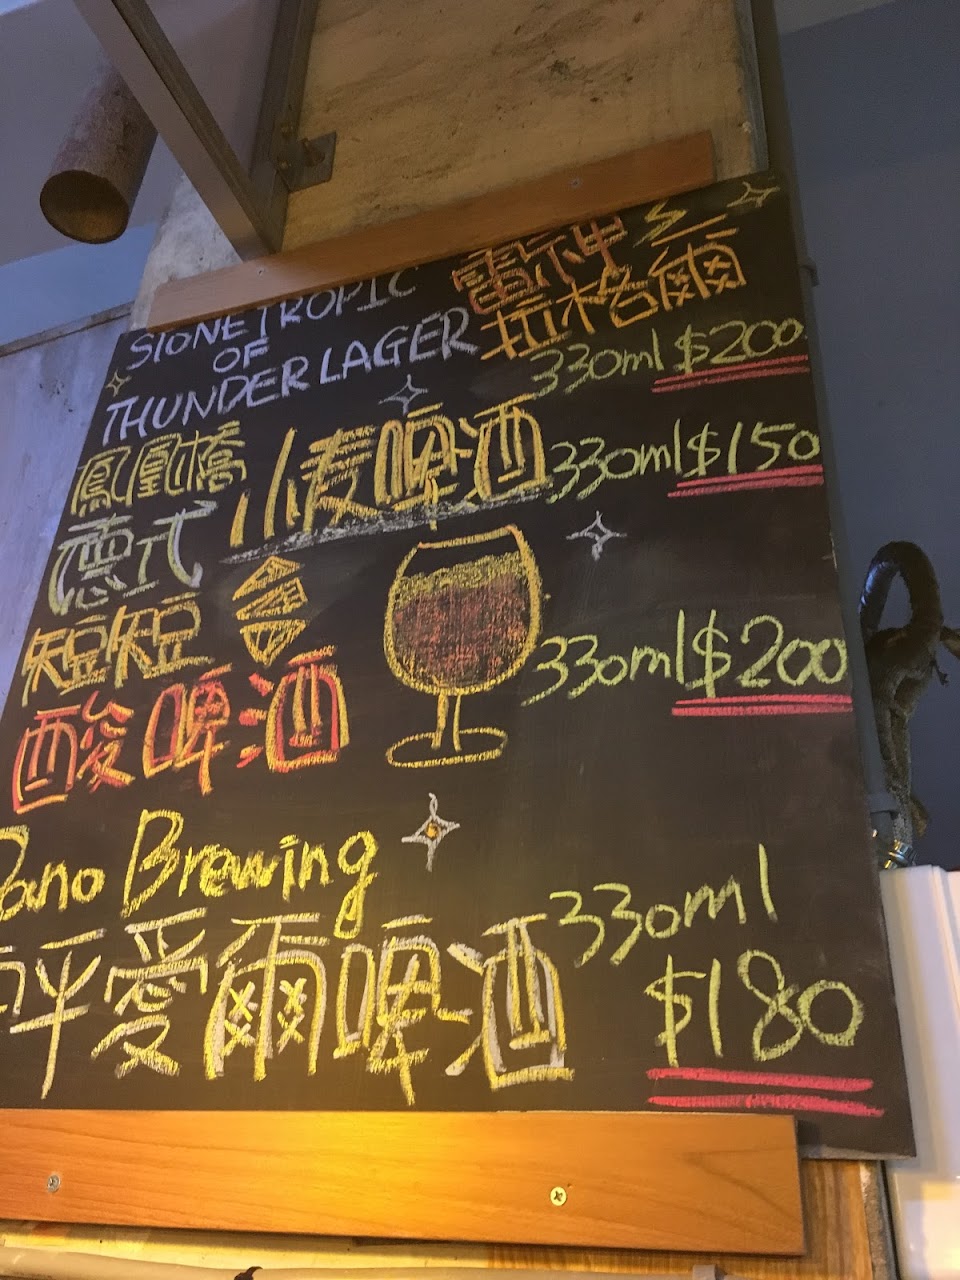 SIONETROPIC
OF
THUNDER LAGER
雷神
拉格爾
330ml $200
鳳凰橋
德式
小麥啤酒
330ml $150
短短
酸啤酒
330ml $200
Pano Brewing
呼平愛爾啤酒
330ml
$180